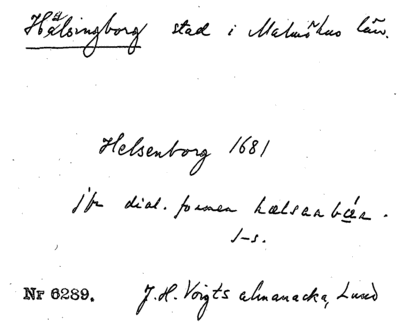 Hälsingborg stad i Malmöhus län.
Helsenborg 1681
jfr dial. formen hælsanbær.
J-s.
Nr 6289. J. H. Voigts almanacka, Lund